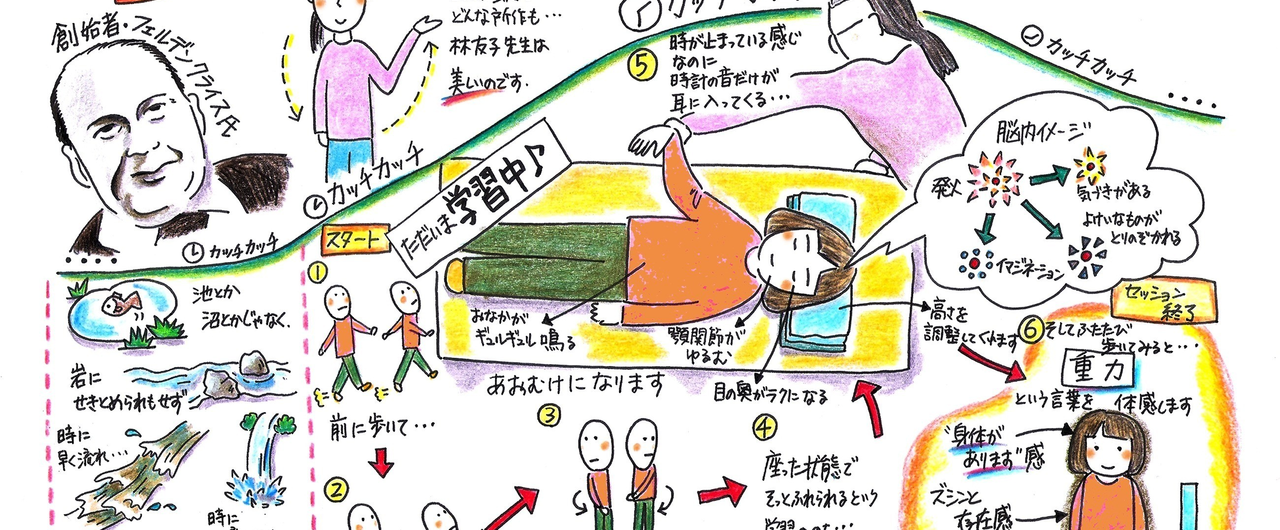 創始者・フェルデンクライス氏
どんな所作も…
林友子先生は
美しいのです.
カッチカッチ
カッチカッチ
カッチカッチ
⑤
時が止まっている感じ
なのに
時計の音だけが
耳に入ってくる…
脳内イメージ
発火
気づきがある
よけいなものが
とりのぞかれる
イマジネーション
スタート
ただいま学習中♪
①
前に歩いて…
②
③
④
座った状態で
そっとふれられるという
おなかが
ギュルギュル鳴る
顎関節が
ゆるむ
目の奥がラクになる
高さを
調整してくれます
あおむけになります
池とか
沼とかじゃなく.
岩に
せきとめられもせず
時に
早く流れ…
時に
セッション
終了
⑥そしてふたたび
歩いてみると…
重力
という言葉を 体感します
"身体が
あります"感
ズシンと
存在感